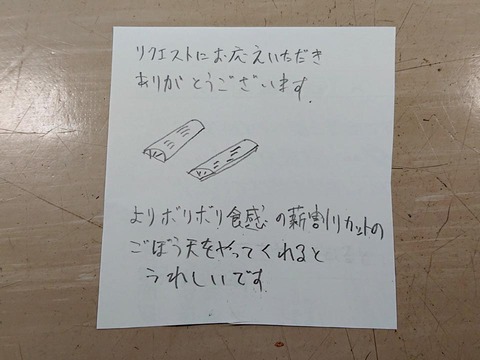 リクエストにお応えいただき
ありがとうございます.
よりボリボリ食感の薪割りカットの
ごぼう天をやってくれると
うれしいです.